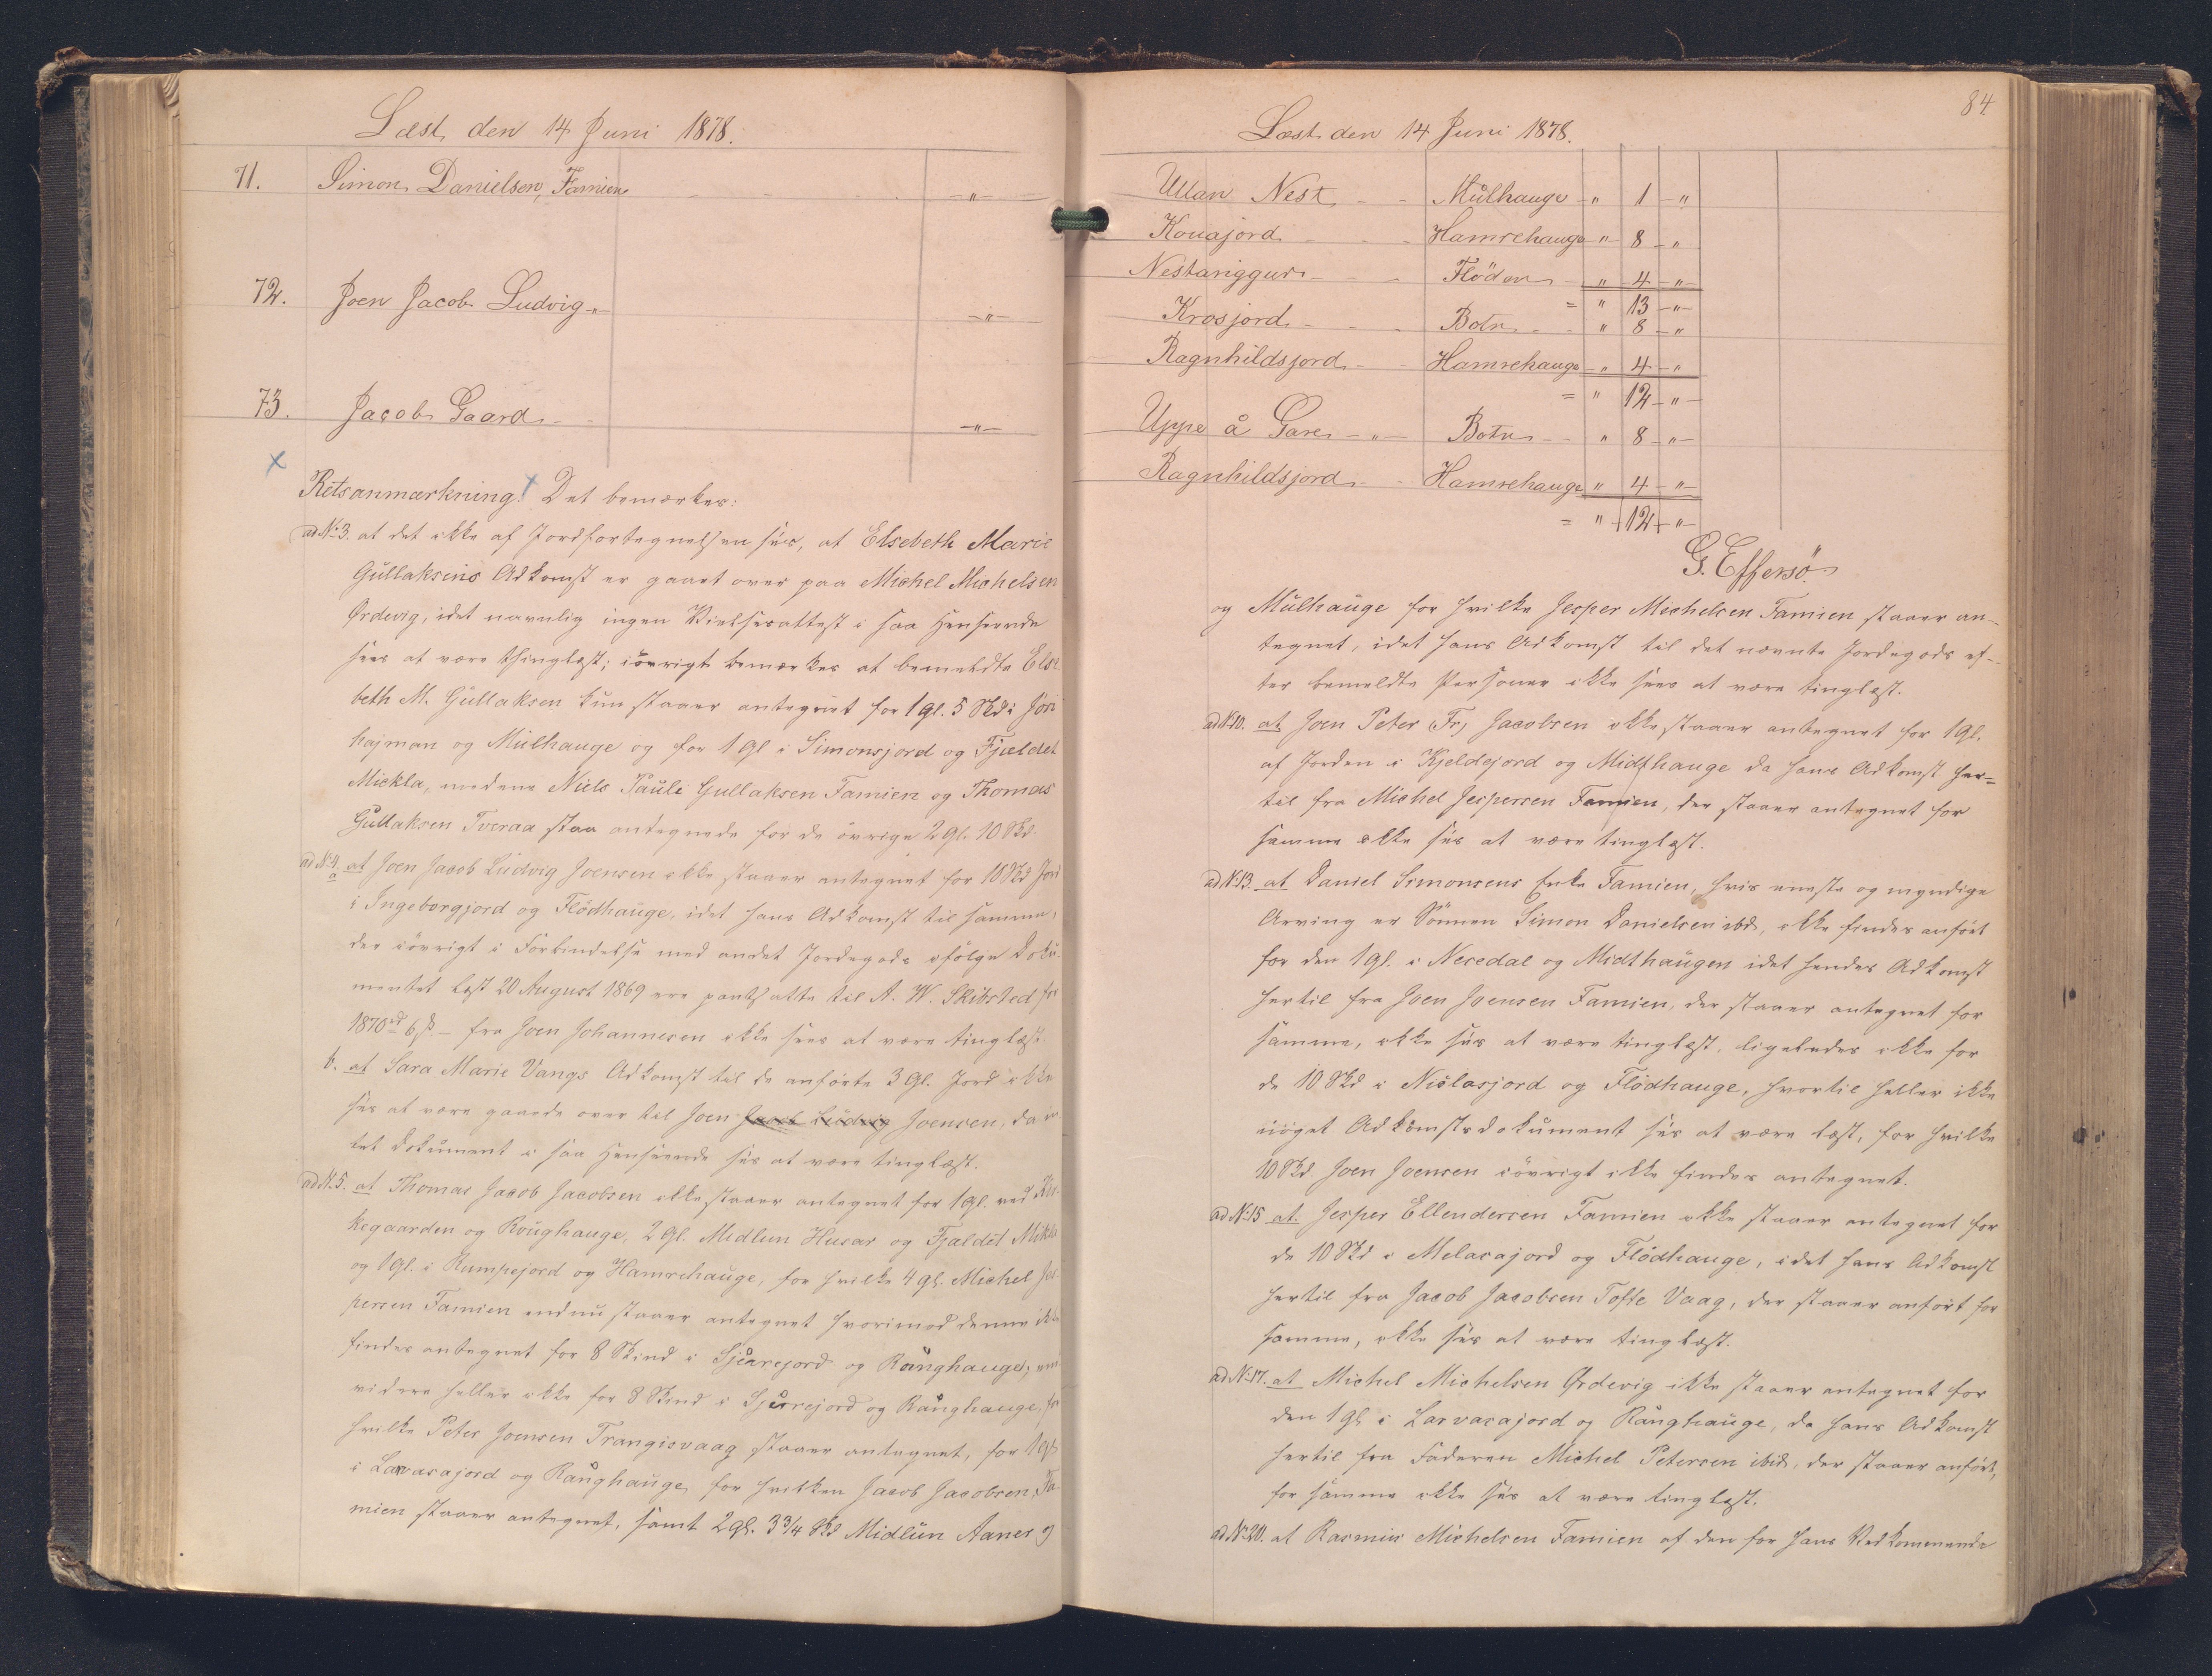 Læst den 14 Juni 1878.
71. Simon Danielsen, Famien — " —
72. Joen Jacob Ludvig " — " —
73. Jacob Gaard — " —
Retsanmærkning. Det bemærkes:
ad No 3. at det ikke af Jordfortegnelsen sees, at Elsebeth Marie
Gullaksens Adkomst er gaaet over paa Michel Michelsen
Ørdevig, idet navnlig ingen Vielsesattest i saa Henseende
sees at være thinglæst; iøvrigt bemærkes at bemeldte Else
beth M. Gullaksen kun staaer antegnet for 1 Gl. 5 Skd i Jöri
hajman og Mülhauge og for 1 Gl i Simonsjord og Fjældet
Mickla, medens Niels Pauli Gullaksen Famien og Thomas
Gullaksen Tveraa staa antegnede for de øvrige 2 Gl. 10 Skd.
ad No 4. a at Joen Jacob Ludvig Joensen ikke staaer antegnet for 10 Skd Jord
i Ingeborgjord og Flödhauge, idet hans Adkomst til samme,
der iövrigt i Forbindelse med andet Jordegods ifölge Doku-
mentet læst 20 August 1869 ere pantsatte til A. W. Skibsted for
1870 rd 6 ß. — fra Joen Johannesen ikke sees at være tinglæst.
b. at Sara Marie Vangs Adkomst til de anförte 3 Gl. Jord ikke
sees at være gaaede over til Joen Jacob Ludvig Joensen, da in
tet Dokument i saa Henseende sees at være tinglæst.
ad No 5. at Thomas Jacob Jacobsen ikke staaer antegnet for 1 Gl. ved Kir
kegaarden og Roughauge, 2 Gl. Midlun Husar og Fjaldet Mikla
og 1 Gl. i Rumpejord og Hamrehauge, for hvilke 4 Gl. Michel Jes
persen Famien endnu staaer antegnet hvorimod denne ikke
findes antegnet for 8 Skind i Sjúrejord og Rånghauge; en
videre heller ikke for 8 Skind i Sjúrrejord og Rånghauge, for
hvilke Peter Joensen Trangisvaag staaer antegnet, for 1 Gl
i Larvasajord og Rånghauge for hvilken Jacob Jacobsen, Fa
mien staaer antegnet, samt 2 Gl. 3 3/4 Skd Midlün Aaner og
84
Læst den 14 Juni 1878.
Utlan Nest Mülhauge " 1 "
Kouajord Hamrehauge " 8 "
Nestariggur Flöden " 4 "
= " 13 "
Krosjord Botn " 8 "
Ragnhildsjord Hamrehauge " 4 "
= " 12 "
Uppe å Gare " Botn " 8 "
Ragnhildsjord Hamrehauge " 4 "
= " 12 "
G. Effersö
og Mülhauge for hvilke Jesper Michelsen Famien staaer an-
tegnet, idet hans Adkomst til det nævnte Jordegods ef-
ter bemeldte Personer ikke sees at være tinglæst.
ad No 10. at Joen Peter Fr, Jacobsen ikke staaer antegnet for 1 Gl.
af Jorden i Kjeldejord og Midthauge da hans Adkomst her=
til fra Michel Jespersen Famien, der staaer antegnet for
samme ikke sees at være tinglæst.
ad No 13. at Daniel Simonsens Enke Famien, hvis eneste og myndige
Arving er Sönnen Simon Danielsen ibd, ikke findes anfört
for den 1 Gl. i Neredal og Midthaugen idet hendes Adkomst
hertil fra Joen Joensen Famien, der staaer antegnet for
samme, ikke sees at være tinglæst, ligeledes ikke for
de 10 Skd i Niclasjord og Flödhauge, hvortil heller ikke
noget Adkomstsdokument sees at være læst, for hvilke
10 Skd. Joen Joensen iövrigt ikke findes antegnet.
ad No 15 at Jesper Ellendersen Famien ikke staaer antegnet for
de 10 Skd i Melasajord og Flödhauge, idet hans Adkomst
hertil fra Jacob Jacobsen Tofte Vaag, der staaer anfört for
samme, ikke sees at være tinglæst.
ad No 17. at Michel Michelsen Ørdevig ikke staaer antegnet for
den 1 Gl i Larvasajord og Rånghauge, da hans Adkomst
hertil fra Faderen Michel Petersen ibid, der staaer anfört,
for samme ikke sees at være tinglæst.
ad No 20. at Rasmus Michelsen Famien af den for hans Vedkommende